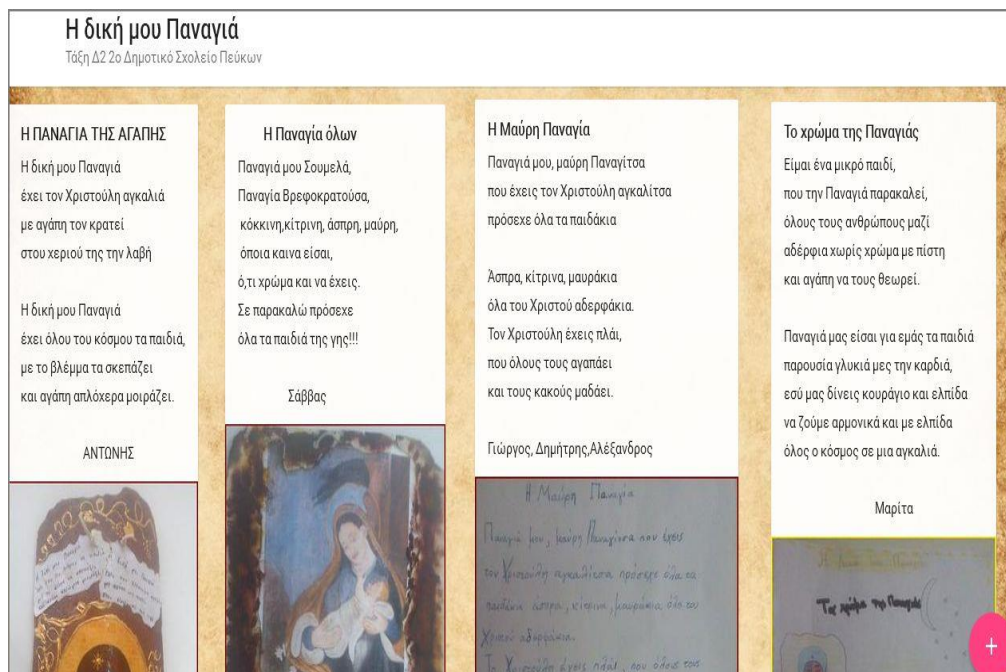 Η δική μου Παναγιά
Τάξη Δ2 2ο Δημοτικό Σχολείο Πεύκων
Η ΠΑΝΑΓΙΑ ΤΗΣ ΑΓΑΠΗΣ
Η δική μου Παναγιά
έχει τον Χριστούλη αγκαλιά
με αγάπη τον κρατεί
στου χεριού της την λαβή
Η δική μου Παναγιά
έχει όλου του κόσμου τα παιδιά,
με το βλέμμα τα σκεπάζει
και αγάπη απλόχερα μοιράζει.
ΑΝΤΩΝΗΣ
Η Παναγία όλων
Παναγιά μου Σουμελά,
Παναγία Βρεφοκρατούσα,
κόκκινη,κίτρινη, άσπρη, μαύρη,
όποια καινα είσαι,
ό,τι χρώμα και να έχεις.
Σε παρακαλώ πρόσεχε
όλα τα παιδιά της γης!!!
Σάββας
Η Μαύρη Παναγία
Παναγιά μου, μαύρη Παναγίτσα
που έχεις τον Χριστούλη αγκαλίτσα
πρόσεχε όλα τα παιδάκια
Άσπρα, κίτρινα, μαυράκια
όλα του Χριστού αδερφάκια.
Τον Χριστούλη έχεις πλάι,
που όλους τους αγαπάει
και τους κακούς μαδάει.
Γιώργος, Δημήτρης,Αλέξανδρος
Η Μαύρη Παναγία
Παναγιά μου, μαύρη Παναγίτσα που έχεις
τον Χριστούλη αγκαλίτσα πρόσεχε όλα τα
παιδάκια άσπρα, κίτρινα, μαυράκια όλα του
Χριστού αδερφάκια.
Τον Χριστούλη έχεις πλάι, που όλους τους
Το χρώμα της Παναγιάς
Είμαι ένα μικρό παιδί,
που την Παναγιά παρακαλεί,
όλους τους ανθρώπους μαζί
αδέρφια χωρίς χρώμα με πίστη
και αγάπη να τους θεωρεί.
Παναγιά μας είσαι για εμάς τα παιδιά
παρουσία γλυκιά μες την καρδιά,
εσύ μας δίνεις κουράγιο και ελπίδα
να ζούμε αρμονικά και με ελπίδα
όλος ο κόσμος σε μια αγκαλιά.
Μαρίτα
Το χρώμα της Παναγιάς